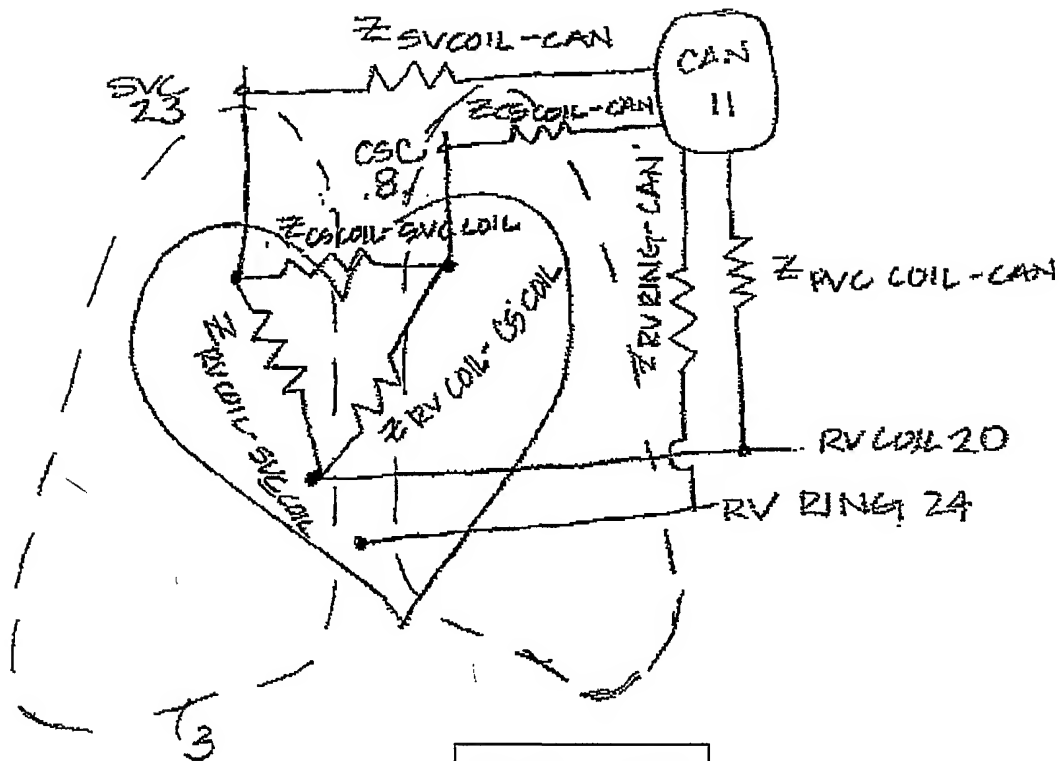 Z SVCOIL-CAN
CAN
11
SVC
23
Z CSCOIL-CAN
CSC
8
Z CSCOIL-SVCCOIL
Z RVCOIL-SVCCOIL
Z RV COIL-CSCOIL
Z RV RING-CAN
Z RVC COIL-CAN
RV COIL 20
RV RING 24
3